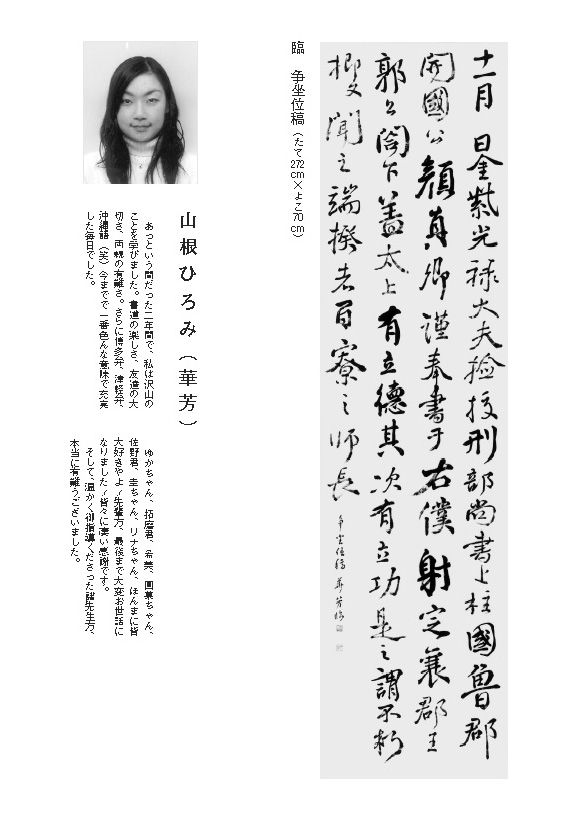 十一月　日金紫光禄大夫撿挍刑部尚書上柱國魯郡
開國公顔真卿謹奉書于右僕射定襄郡王
郭公閤下蓋太上有立德其次有立功是之謂不朽
抑又聞之端揆者百寮之師長
争坐位稿　華芳臨
臨　争坐位稿（たて272cm×よこ70cm）
山根ひろみ（華芳）
あっという間だった二年間で、私は沢山の
ことを学びました。書道の楽しさ、友達の大
切さ、両親の有難さ。さらに博多弁、津軽弁、
沖縄語（笑）今までで一番色んな意味で充実
した毎日でした。
ゆかちゃん、拓磨君、希美、圓菓ちゃん、
佳野君、幸ちゃん、リナちゃん、ほんまに皆
大好きやよ♪先輩方、最後まで大変お世話に
なりました♪皆々に凄い感謝です。
そして、温かく御指導くださった諸先生方、
本当に有難うございました。